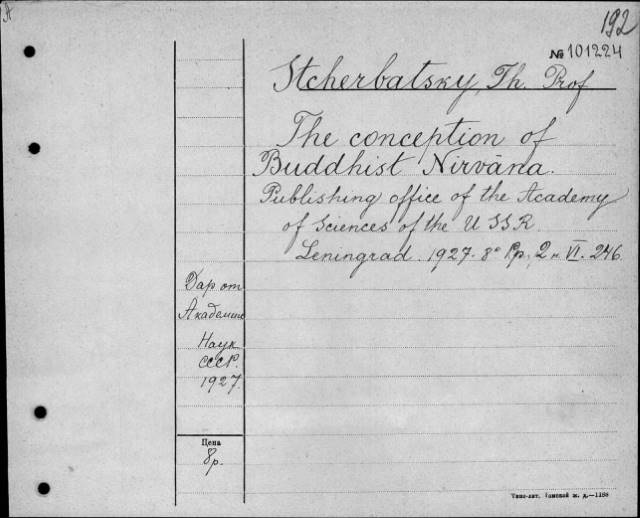 192
№ 101224
Stcherbatsky, Th. Prof
The conception of
Buddhist Nirvāna.
Publishing office of the Academy
of Sciences of the USSR.
Leningrad. 1927. 8° VI. 246.
Дар от
Академии
Наук
СССР.
1927.
Цена
8р.
Типо-лит. Томской ж. д.—1198